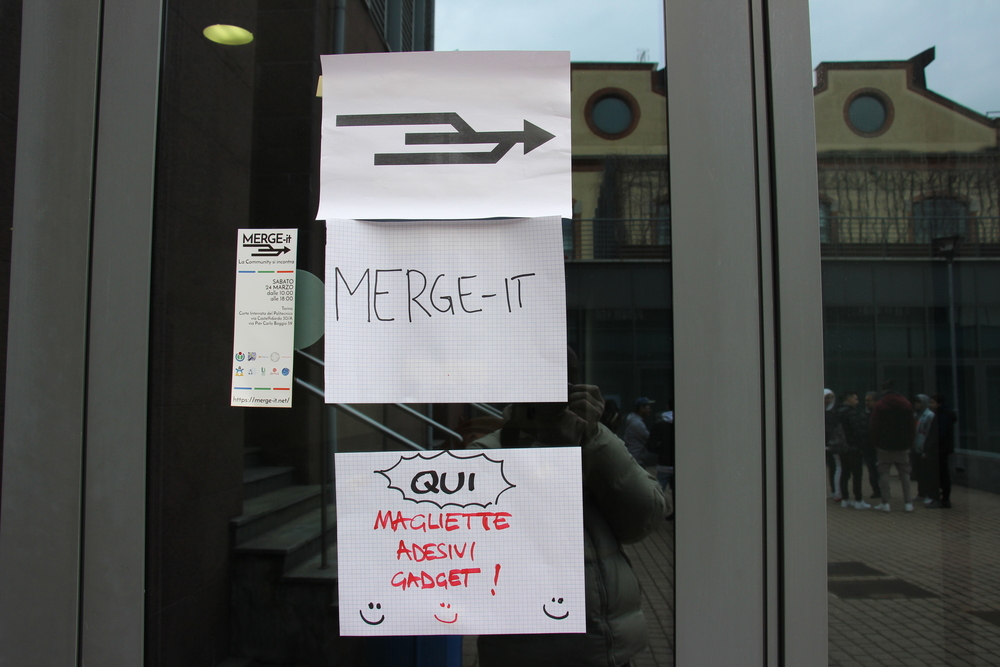 MERGE-it
La Community s'incontra
SABATO
24 MARZO
dalle 10:00
alle 18:00
Torino
Corte Interrata del Politecnico
via Castelfidardo 30/A
via Pier Carlo Boggio 59
https://merge-it.net/
MERGE-IT
QUI
MAGLIETTE
ADESIVI
GADGET !